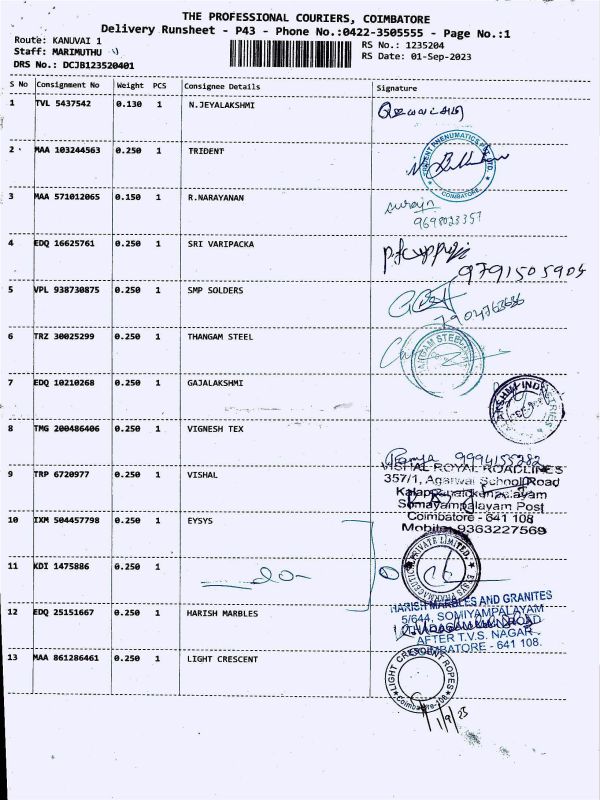 THE PROFESSIONAL COURIERS, COIMBATORE
Delivery Runsheet - P43 - Phone No.:0422-3505555 - Page No.:1
Route: KANUVAI 1
Staff: MARIMUTHU
DRS No.: DCJB123520401
RS No.: 1235204
RS Date: 01-Sep-2023
S No Consignment No Weight PCS Consignee Details Signature
1 TVL 5437542 0.130 1 N.JEYALAKSHMI
2 MAA 103244563 0.250 1 TRIDENT
TRIDENT PNEUMATICS PVT. LTD.
COIMBATORE
3 MAA 571012065 0.150 1 R.NARAYANAN
9698023357
4 EDQ 16625761 0.250 1 SRI VARIPACKA
9791505905
5 VPL 938730875 0.250 1 SMP SOLDERS
6 TRZ 30025299 0.250 1 THANGAM STEEL
7 EDQ 10210268 0.250 1 GAJALAKSHMI
8 TMG 200486406 0.250 1 VIGNESH TEX
Ramya 9994155282
9 TRP 6720977 0.250 1 VISHAL
VISHAL ROYAL ROADLINES
357/1, Agarwal School Road
Somayampalayam Post
Coimbatore - 641 108
Mobile: 9363227569
10 IXM 504457798 0.250 1 EYSYS
11 KDI 1475886 0.250 1
-do-
12 EDQ 25151667 0.250 1 HARISH MARBLES
HARISH MARBLES AND GRANITES
5/644, SOMIYAMPALAYAM
AFTER T.V.S. NAGAR
COIMBATORE - 641 108.
13 MAA 861286461 0.250 1 LIGHT CRESCENT
LIGHT CRESCENT ROPES
1/9/23